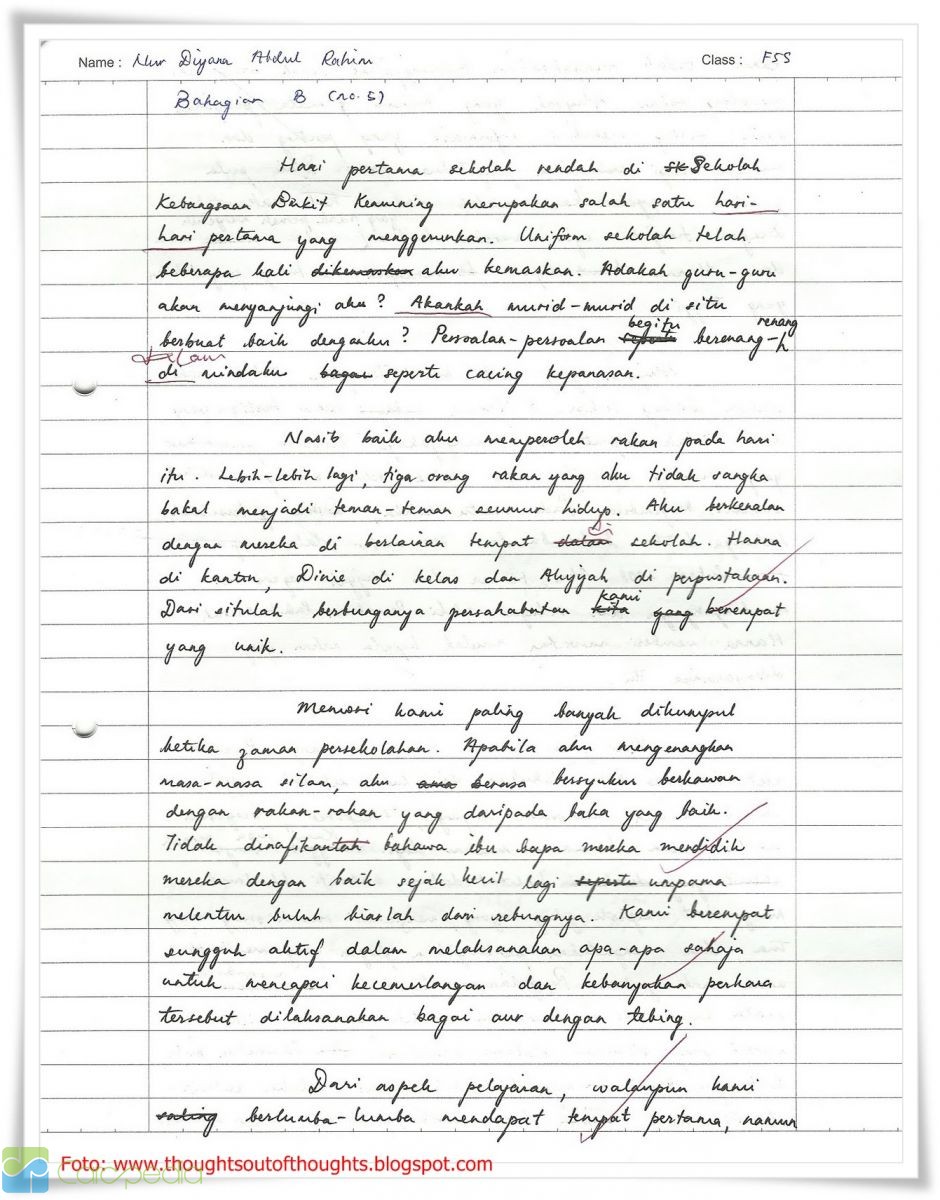 Name : Nur Diyana Abdul Rahim Class : F5S
Bahagian B (no. 5)
Hari pertama sekolah rendah di SK Sekolah
Kebangsaan Bukit Kemuning merupakan salah satu hari-
hari pertama yang menggerunkan. Uniform sekolah telah
beberapa kali dikemaskan aku kemaskan. Adakah guru-guru
akan menyanjungi aku? Akankah murid-murid di situ
begitu renang
berbuat baik denganku? Persoalan-persoalan seperti berenang-
dalam
di mindaku bagai seperti cacing kepanasan.
Nasib baik aku memperoleh rakan pada hari
itu. Lebih-lebih lagi, tiga orang rakan yang aku tidak sangka
bakal menjadi teman-teman seumur hidup. Aku berkenalan
di
dengan mereka di berlainan tempat dalam sekolah. Hanna
di kantin, Dinie di kelas dan Aliyyah di perpustakaan.
kami
Dari situlah berbunganya persahabatan kita yang berempat
yang unik.
Memori kami paling banyak dikumpul
ketika zaman persekolahan. Apabila aku mengenangkan
masa-masa silam, aku berasa bersyukur berkawan
dengan rakan-rakan yang daripada baka yang baik.
Tidak dinafikantah bahawa ibu bapa mereka mendidik
mereka dengan baik sejak kecil lagi seperti umpama
melentur buluh biarlah dari rebungnya. Kami berempat
sungguh aktif dalam melaksanakan apa-apa sahaja
untuk mencapai kecemerlangan dan kebanyakan perkara
tersebut dilaksanakan bagai aur dengan tebing.
Dari aspek pelajaran, walaupun kami
saling berlumba-lumba mendapat tempat pertama, namun
Foto: www.thoughtsoutofthoughts.blogspot.com